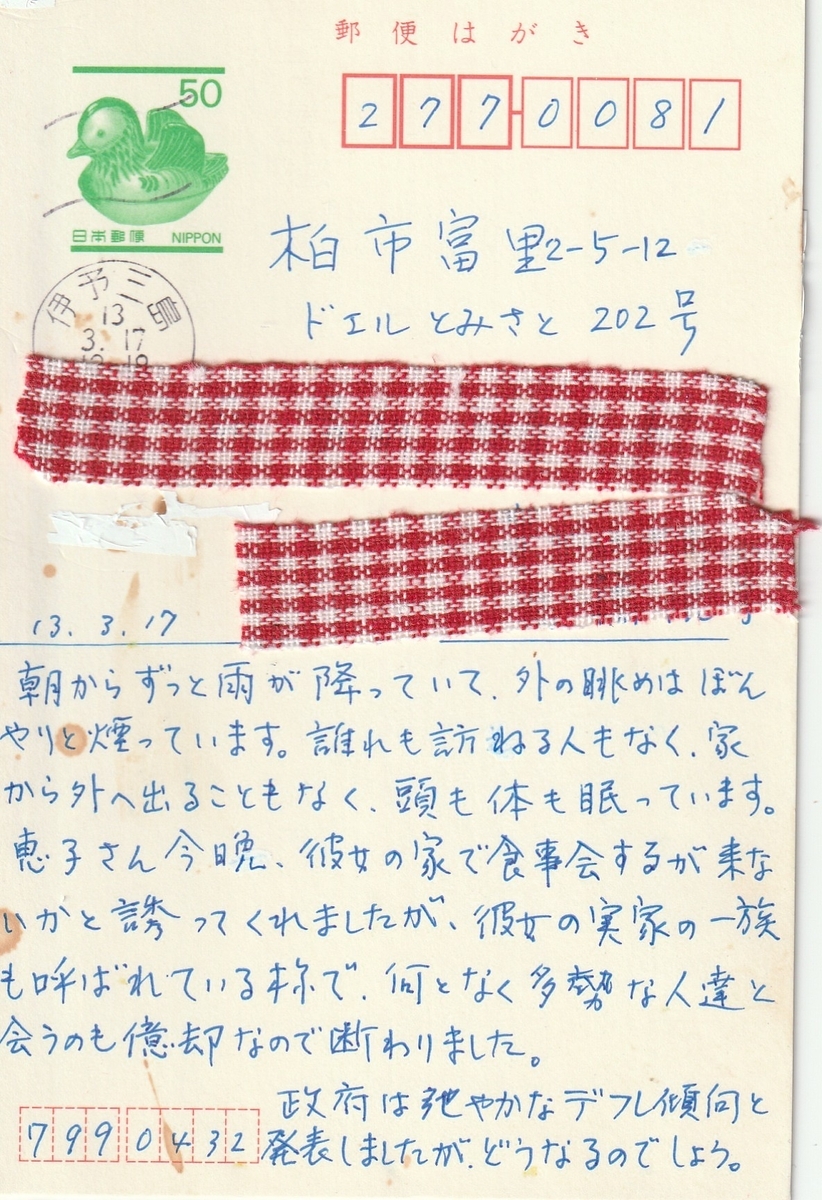 郵便はがき
50
日本郵便 NIPPON
277-0081
伊予三島
13
3.17
柏市富里2-5-12
ドエルとみさと 202号
13.3.17
朝からずっと雨が降っていて、外の眺めはぼん
やりと煙っています。誰れも訪ねる人もなく、家
から外へ出ることもなく、頭も体も眠っています。
恵子さん今晩、彼女の家で食事会するが来な
いかと誘ってくれましたが、彼女の実家の一族
も呼ばれている様で、何となく多勢な人達と
会うのも億却なので断わりました。
政府は弛やかなデフレ傾向と
発表しましたが、どうなるのでしょう。
7990432